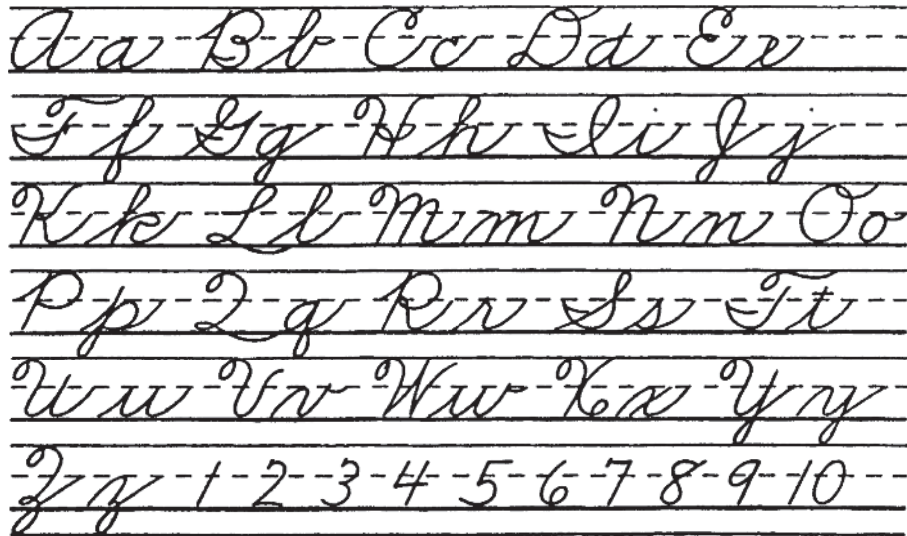 A a B b C c D d E e
F f G g H h I i J j
K k L l M m N n O o
P p Q q R r S s T t
U u V v W w X x Y y
Z z 1 2 3 4 5 6 7 8 9 10